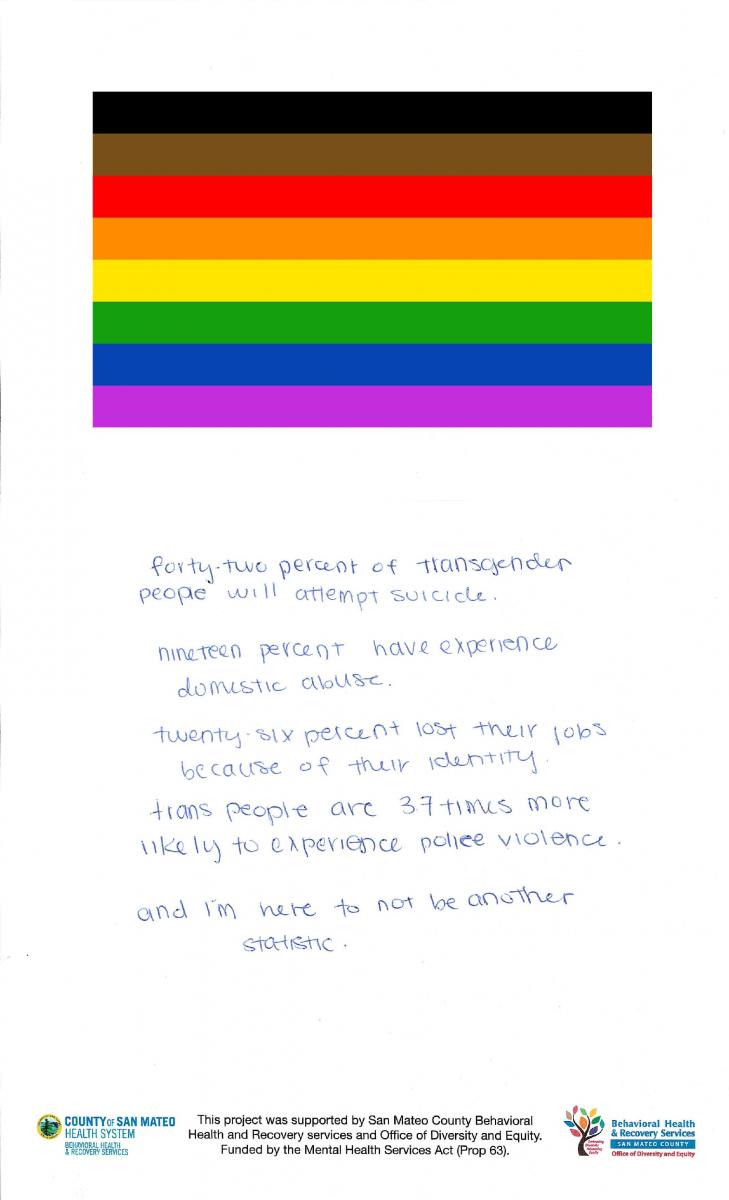 forty-two percent of transgender
people will attempt suicide.
nineteen percent have experience
domestic abuse.
twenty-six percent lost their jobs
because of their identity.
trans people are 3.7 times more
likely to experience police violence.
and i'm here to not be another
statistic.
COUNTY OF SAN MATEO
HEALTH SYSTEM
BEHAVIORAL HEALTH
& RECOVERY SERVICES
This project was supported by San Mateo County Behavioral
Health and Recovery services and Office of Diversity and Equity.
Funded by the Mental Health Services Act (Prop 63).
Behavioral Health
& Recovery Services
SAN MATEO COUNTY
Office of Diversity and Equity